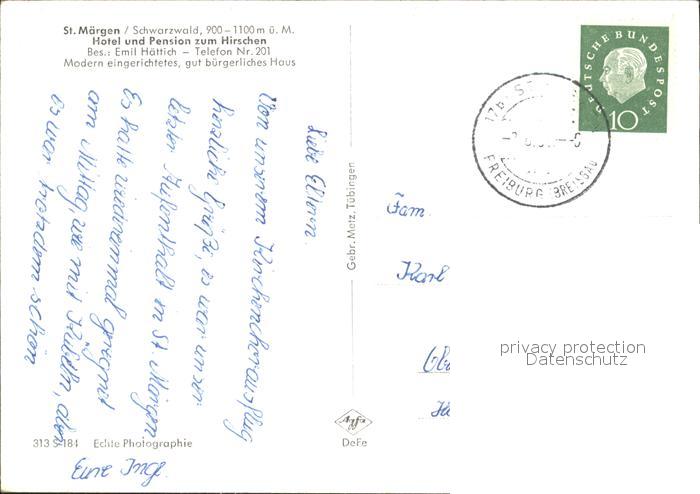 St. Märgen / Schwarzwald, 900–1100 m ü. M.
Hotel und Pension zum Hirschen
Bes.: Emil Hättich – Telefon Nr. 201
Modern eingerichtetes, gut bürgerliches Haus
Liebe Eltern.
Von unserem Kirchenchorausflug
herzliche Grüße, es war unser
letzter Aufenthalt in St. Märgen.
Es hatte wieder einmal geregnet
am Mittag, wie mit Kübeln, aber
es war trotzdem schön
Eure Ingl.
313 S-184 Echte Photographie
Gebr. Metz, Tübingen
Agfa
DeFe
DEUTSCHE BUNDESPOST
10
17b ST.
FREIBURG (BREISGAU)
Fam.
Karl
privacy protection
Datenschutz